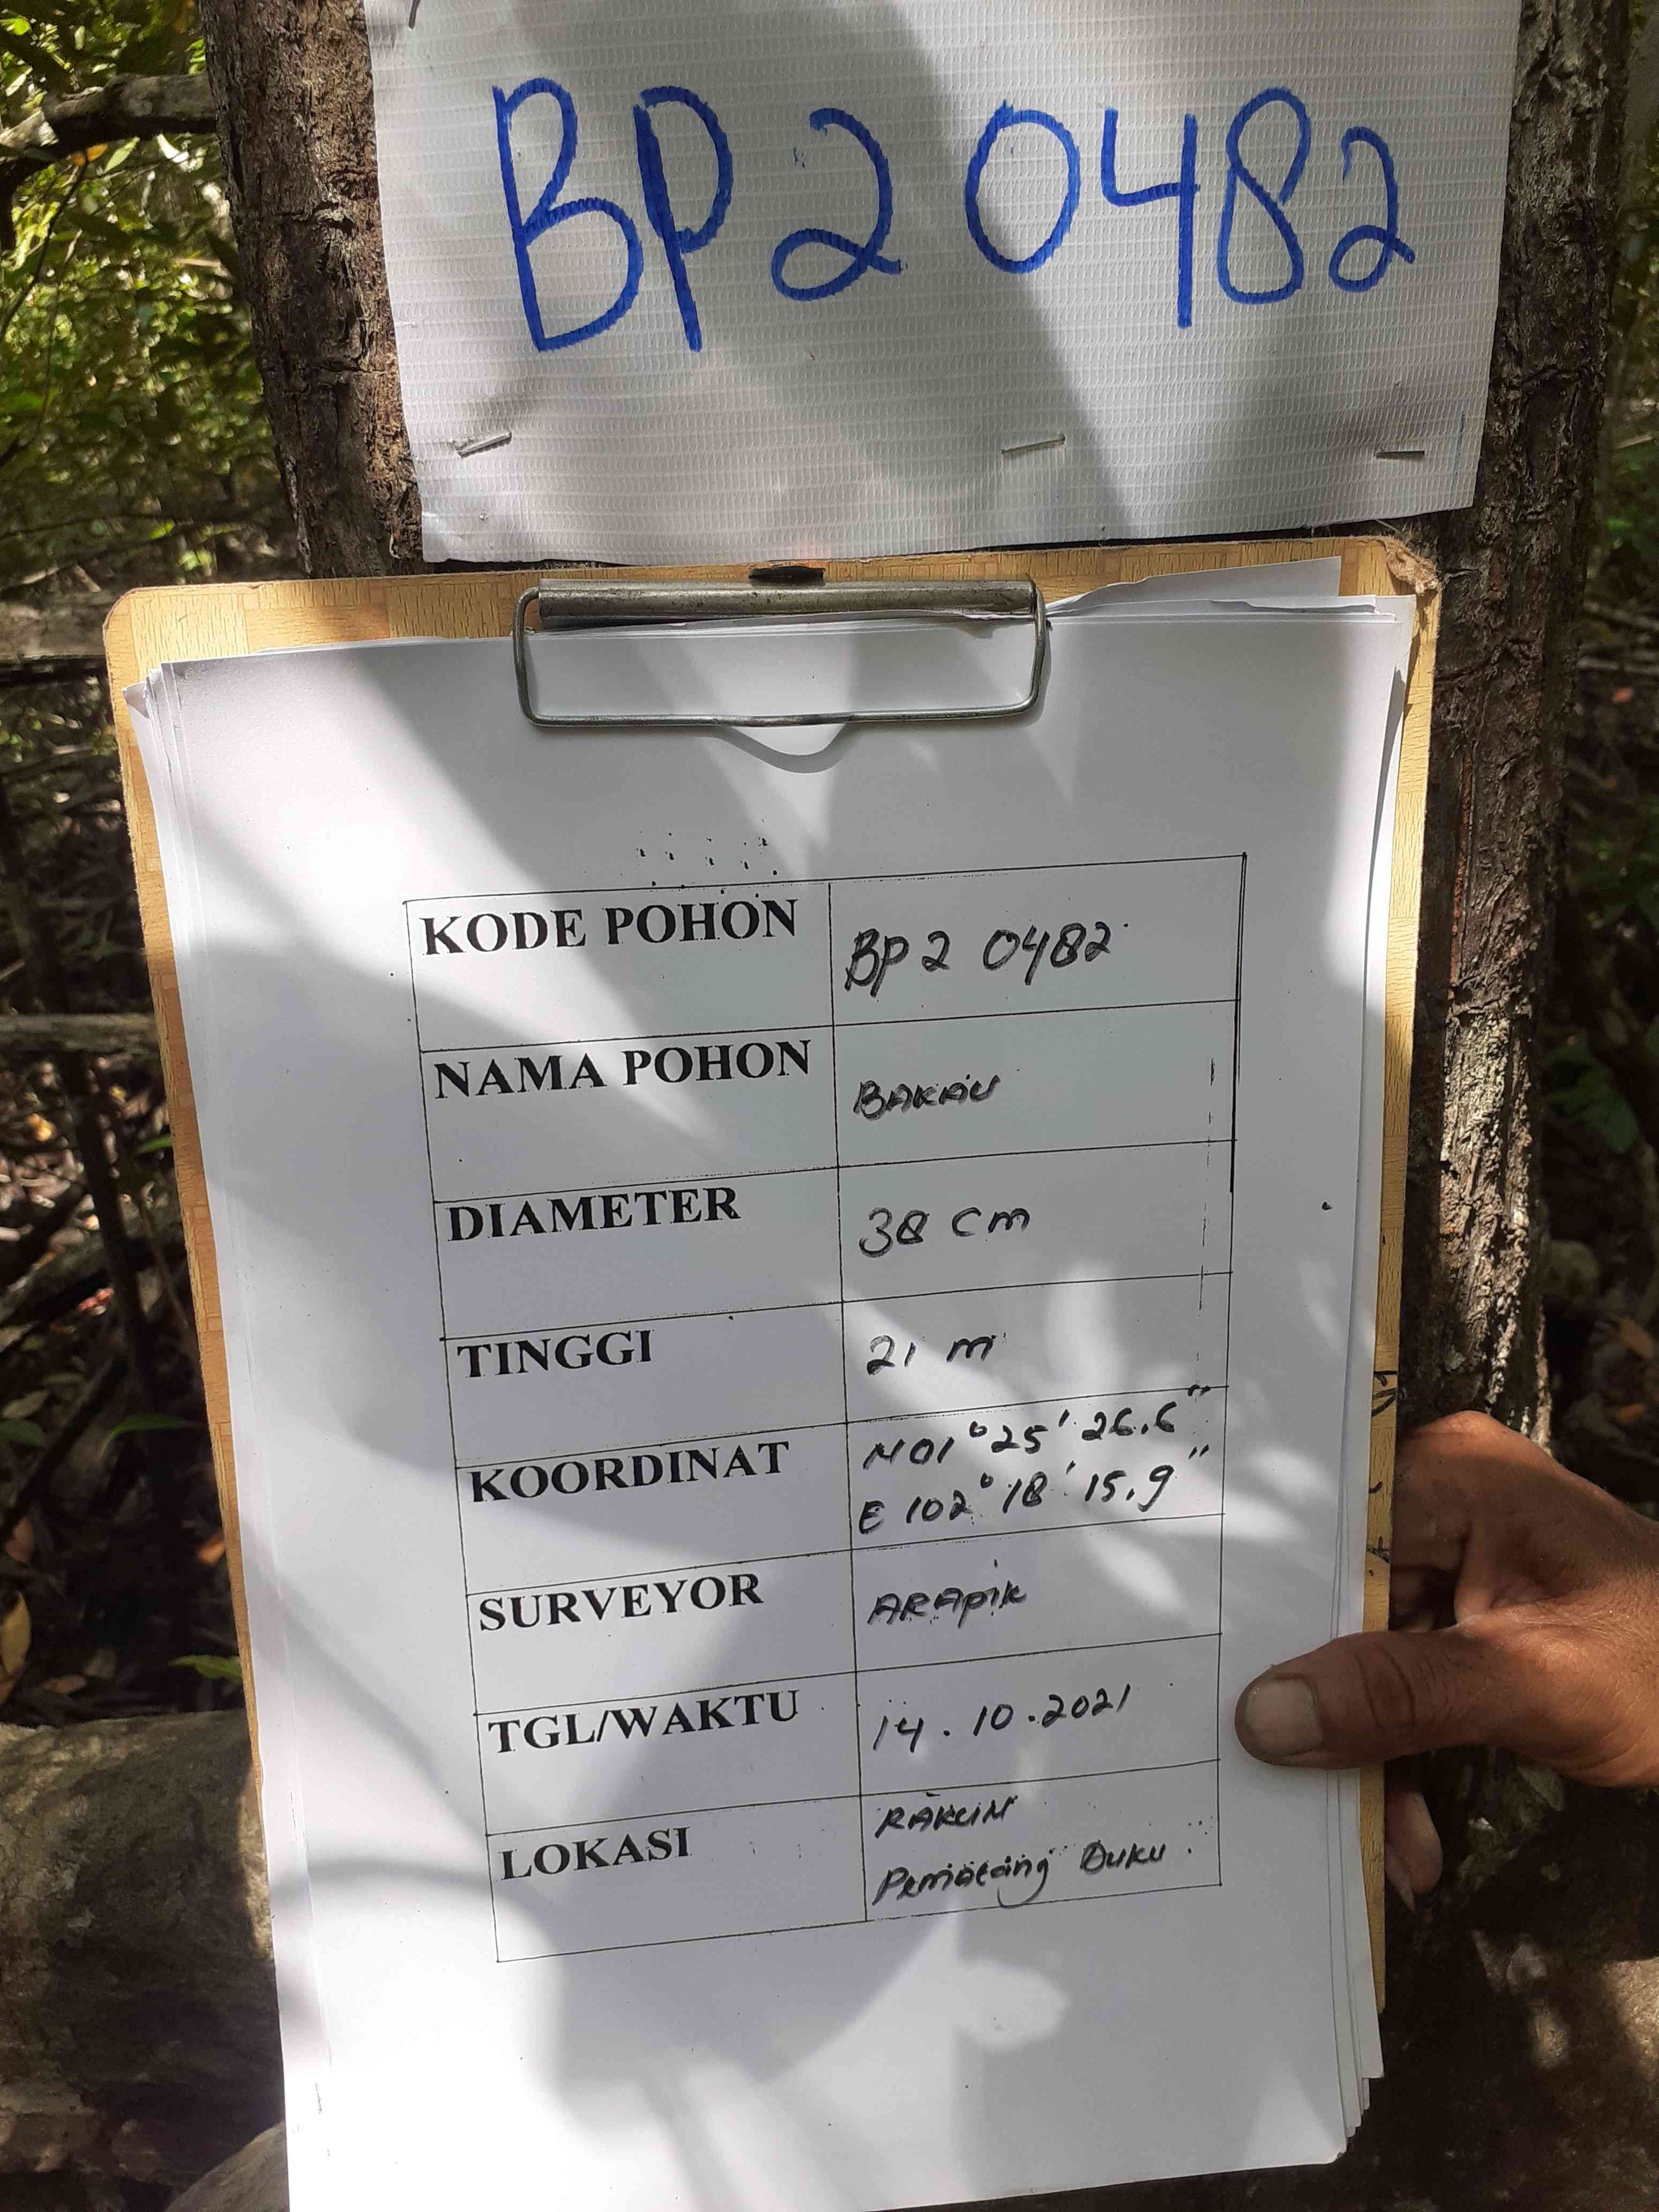 BP2 0482
KODE POHON BP2 0482
NAMA POHON BAKAU
DIAMETER 38 cm
TINGGI 21 m
KOORDINAT N01°25'26.6"
E 102°18'15.9"
SURVEYOR ARApik
TGL/WAKTU 14.10.2021
LOKASI RAKUN
Pematang Duku.